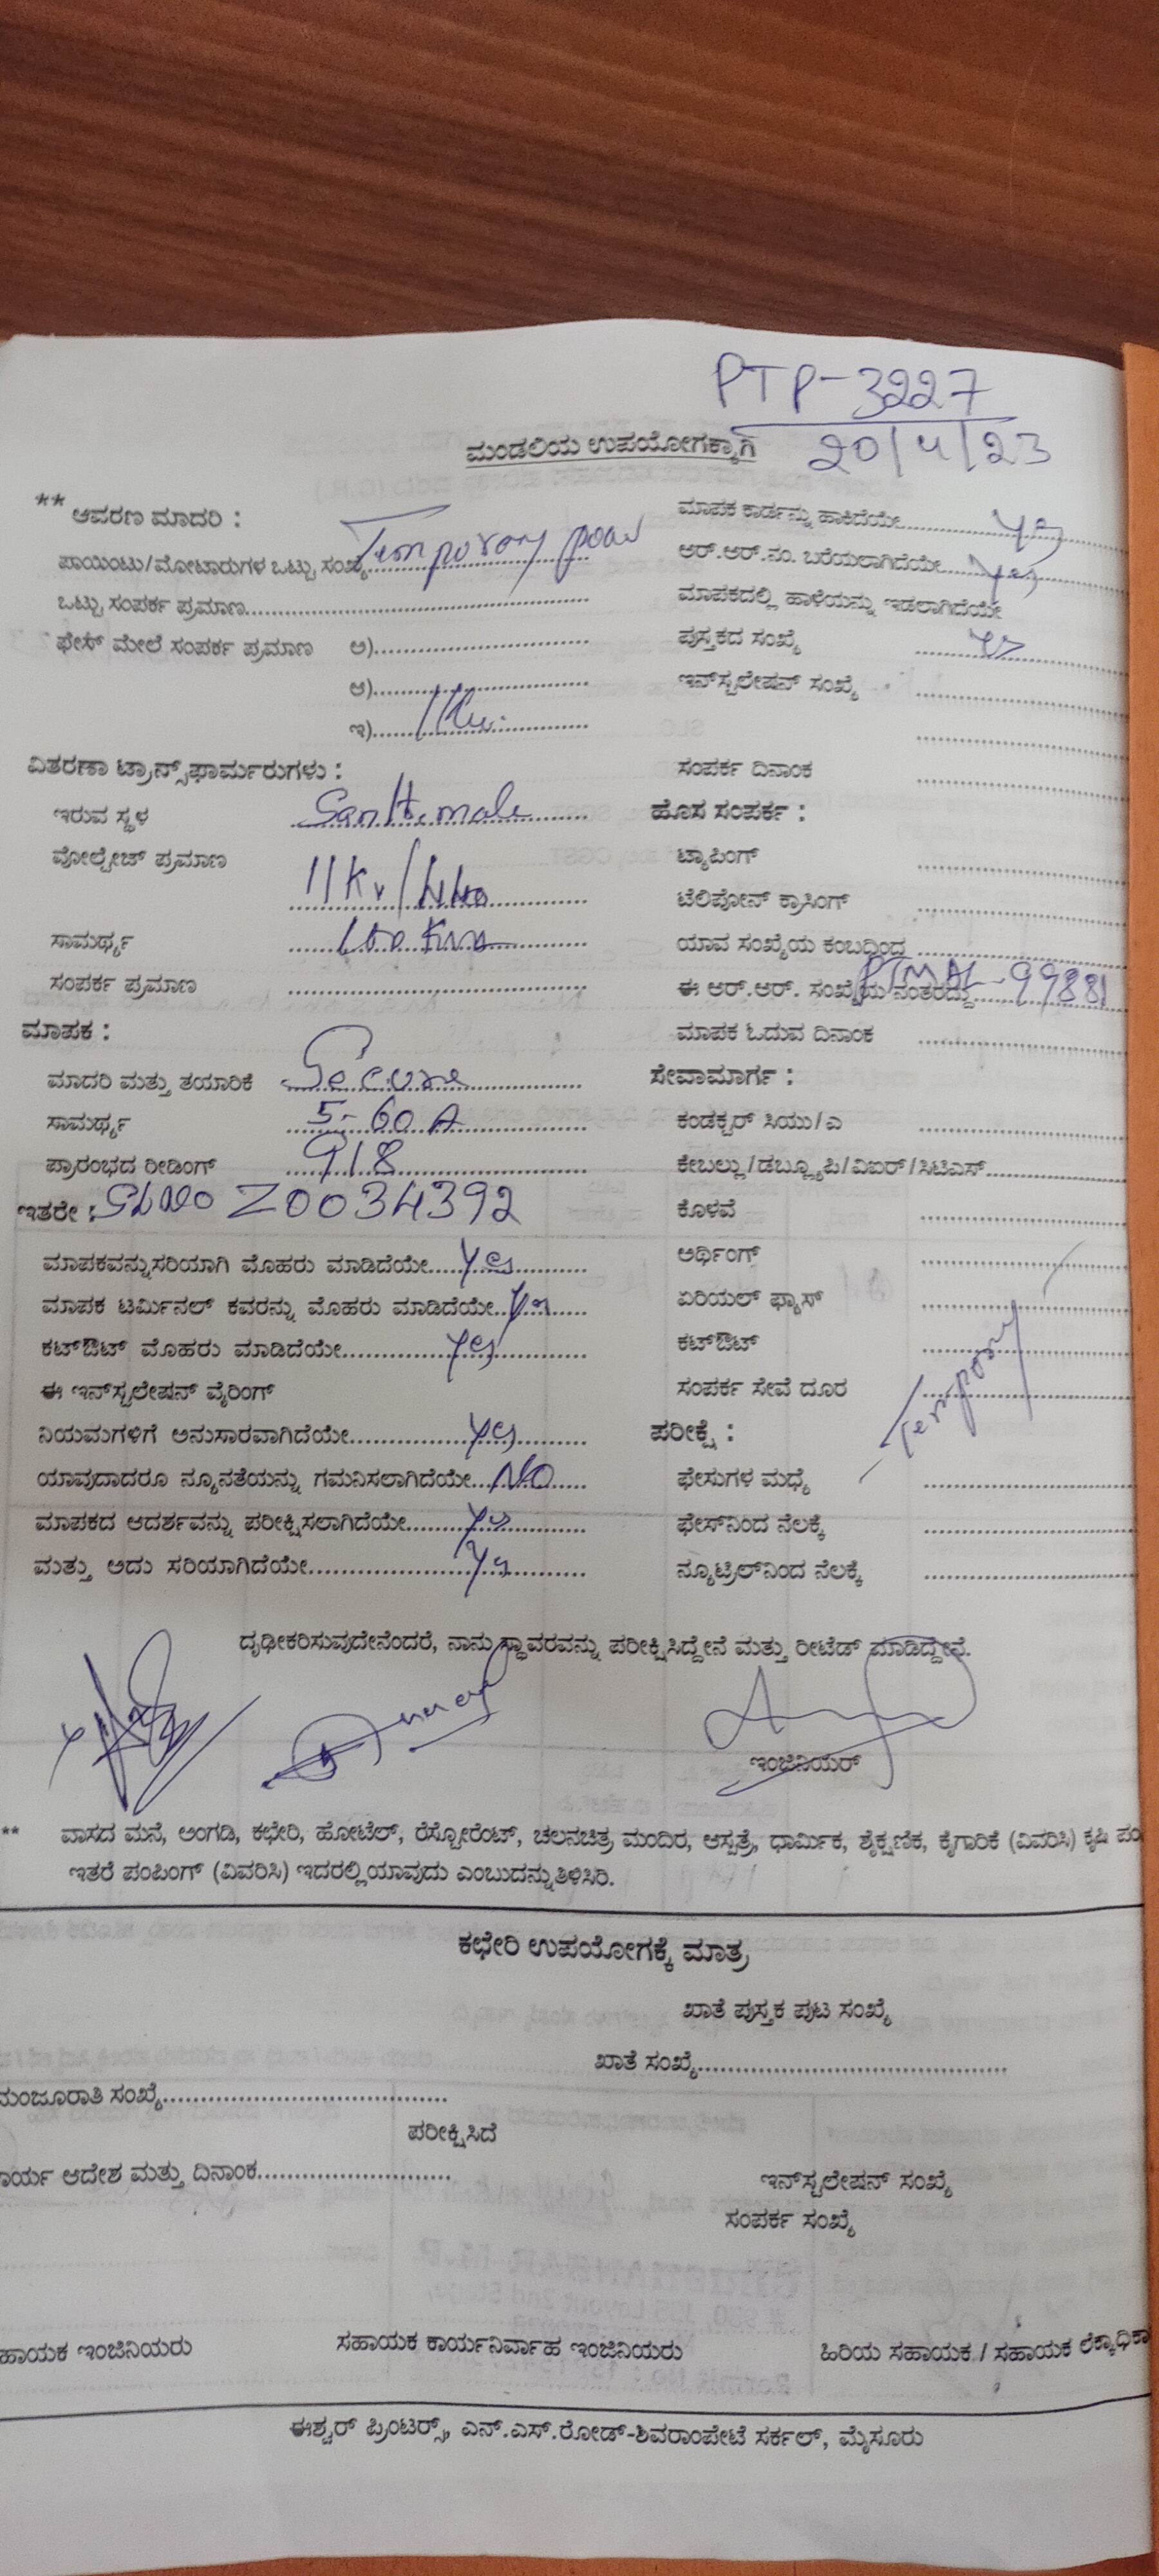 PTP-3227
20/4/23
ಮಂಡಲಿಯ ಉಪಯೋಗಕ್ಕಾಗಿ
** ಆವರಣ ಮಾದರಿ :
ಪಾಯಿಂಟು/ಮೋಟಾರುಗಳ ಒಟ್ಟು ಸಂಖ್ಯೆ Temporary
ಒಟ್ಟು ಸಂಪರ್ಕ ಪ್ರಮಾಣ
ಫೇಸ್ ಮೇಲೆ ಸಂಪರ್ಕ ಪ್ರಮಾಣ ಅ)
ಆ)
ಇ)
ವಿತರಣಾ ಟ್ರಾನ್ಸ್‌ಫಾರ್ಮರುಗಳು :
ಇರುವ ಸ್ಥಳ
ವೋಲ್ಟೇಜ್ ಪ್ರಮಾಣ 11Kv/440
ಸಾಮರ್ಥ್ಯ 100
ಸಂಪರ್ಕ ಪ್ರಮಾಣ
ಮಾಪಕ :
ಮಾದರಿ ಮತ್ತು ತಯಾರಿಕೆ Secure
ಸಾಮರ್ಥ್ಯ 5-60 A
ಪ್ರಾರಂಭದ ರೀಡಿಂಗ್ 918
ಇತರೇ : SLNO Z0034392
ಮಾಪಕವನ್ನು ಸರಿಯಾಗಿ ಮೊಹರು ಮಾಡಿದೆಯೇ yes
ಮಾಪಕ ಟರ್ಮಿನಲ್ ಕವರನ್ನು ಮೊಹರು ಮಾಡಿದೆಯೇ yes
ಕಟ್‌ಔಟ್ ಮೊಹರು ಮಾಡಿದೆಯೇ yes
ಈ ಇನ್‌ಸ್ಟಲೇಷನ್ ವೈರಿಂಗ್
ನಿಯಮಗಳಿಗೆ ಅನುಸಾರವಾಗಿದೆಯೇ yes
ಯಾವುದಾದರೂ ನ್ಯೂನತೆಯನ್ನು ಗಮನಿಸಲಾಗಿದೆಯೇ NO
ಮಾಪಕದ ಆದರ್ಶವನ್ನು ಪರೀಕ್ಷಿಸಲಾಗಿದೆಯೇ yes
ಮತ್ತು ಅದು ಸರಿಯಾಗಿದೆಯೇ yes
ಮಾಪಕ ಕಾರ್ಡನ್ನು ಹಾಕಿದೆಯೇ yes
ಆರ್.ಆರ್.ನಂ. ಬರೆಯಲಾಗಿದೆಯೇ yes
ಮಾಪಕದಲ್ಲಿ ಹಾಳೆಯನ್ನು ಇಡಲಾಗಿದೆಯೇ
ಪುಸ್ತಕದ ಸಂಖ್ಯೆ
ಇನ್‌ಸ್ಟಲೇಷನ್ ಸಂಖ್ಯೆ
ಸಂಪರ್ಕ ದಿನಾಂಕ
ಹೊಸ ಸಂಪರ್ಕ :
ಟ್ಯಾಪಿಂಗ್
ಟೆಲಿಪೋನ್ ಕ್ರಾಸಿಂಗ್
ಯಾವ ಸಂಖ್ಯೆಯ ಕಂಬದ್ದಿಂದ
ಈ ಆರ್.ಆರ್. ಸಂಖ್ಯೆಯ ನಂತರದ್ದು
ಮಾಪಕ ಓದುವ ದಿನಾಂಕ
ಸೇವಾಮಾರ್ಗ :
ಕಂಡಕ್ಟರ್ ಸಿಯು/ಎ
ಕೇಬಲ್ಲು/ಡಬ್ಲ್ಯೂಪಿ/ವಿಐರ್/ಸಿಟಿಎಸ್
ಕೊಳವೆ
ಅರ್ಥಿಂಗ್
ಏರಿಯಲ್ ಫ್ಯೂಸ್
ಕಟ್‌ಔಟ್
ಸಂಪರ್ಕ ಸೇವೆ ದೂರ
Temporary
ಪರೀಕ್ಷೆ :
ಫೇಸುಗಳ ಮಧ್ಯೆ
ಫೇಸ್‌ನಿಂದ ನೆಲಕ್ಕೆ
ನ್ಯೂಟ್ರಲ್‌ನಿಂದ ನೆಲಕ್ಕೆ
ದೃಢೀಕರಿಸುವುದೇನೆಂದರೆ, ನಾನು ಸ್ಥಾವರವನ್ನು ಪರೀಕ್ಷಿಸಿದ್ದೇನೆ ಮತ್ತು ರೀಟೆಡ್ ಮಾಡಿದ್ದೇನೆ.
ಇಂಜಿನಿಯರ್
** ವಾಸದ ಮನೆ, ಅಂಗಡಿ, ಕಛೇರಿ, ಹೋಟೆಲ್, ರೆಸ್ಟೋರೆಂಟ್, ಚಲನಚಿತ್ರ ಮಂದಿರ, ಆಸ್ಪತ್ರೆ, ಧಾರ್ಮಿಕ, ಶೈಕ್ಷಣಿಕ, ಕೈಗಾರಿಕೆ (ವಿವರಿಸಿ) ಕೃಷಿ
ಇತರೆ ಪಂಪಿಂಗ್ (ವಿವರಿಸಿ) ಇದರಲ್ಲಿ ಯಾವುದು ಎಂಬುದನ್ನು ತಿಳಿಸಿರಿ.
ಕಛೇರಿ ಉಪಯೋಗಕ್ಕೆ ಮಾತ್ರ
ಖಾತೆ ಪುಸ್ತಕ ಪುಟ ಸಂಖ್ಯೆ
ಖಾತೆ ಸಂಖ್ಯೆ
ಮಂಜೂರಾತಿ ಸಂಖ್ಯೆ
ಪರೀಕ್ಷಿಸಿದೆ
ಾರ್ಯ ಆದೇಶ ಮತ್ತು ದಿನಾಂಕ
ಇನ್‌ಸ್ಟಲೇಷನ್ ಸಂಖ್ಯೆ
ಸಂಪರ್ಕ ಸಂಖ್ಯೆ
ಹಾಯಕ ಇಂಜಿನಿಯರು ಸಹಾಯಕ ಕಾರ್ಯನಿರ್ವಾಹ ಇಂಜಿನಿಯರು ಹಿರಿಯ ಸಹಾಯಕ / ಸಹಾಯಕ ಲೆಕ್ಕಾಧಿಕಾ
ಈಶ್ವರ್ ಪ್ರಿಂಟರ್ಸ್, ಎನ್.ಎಸ್.ರೋಡ್-ಶಿವರಾಂಪೇಟೆ ಸರ್ಕಲ್, ಮೈಸೂರು